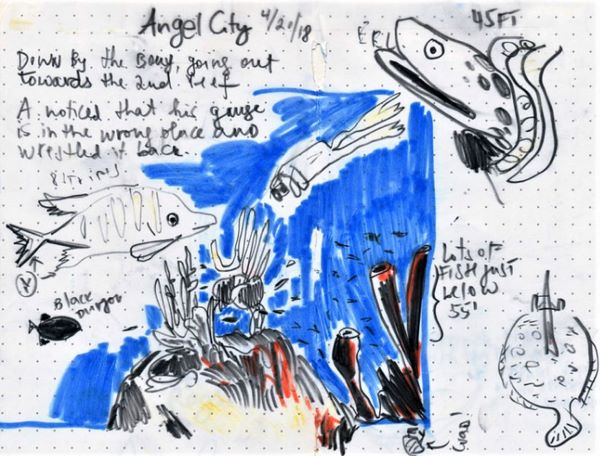 Angel City 4/20/18
Down By the Bouy, going out
towards the 2nd reef
A. noticed that his gauge
is in the wrong place and
wrestled it back.
45FT
8 stripes
Black
Durgon
Lots of
FISH just
below
55'